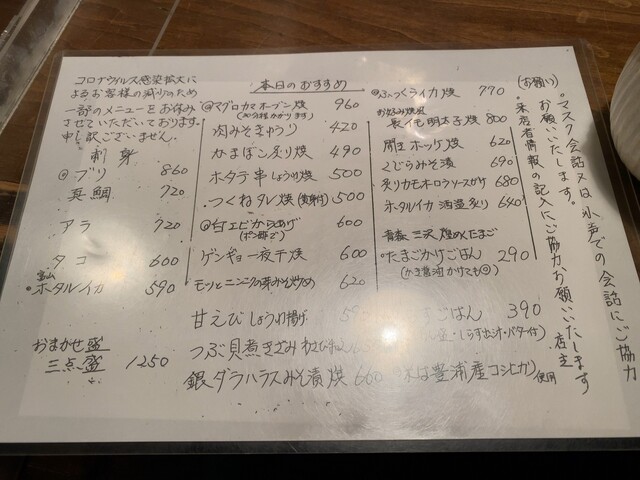 コロナウイルス感染拡大に
よるお客様の減少のため
一部のメニューをお休み
させていただいております。
申し訳ございません。
刺身
◎ブリ 860
真鯛 720
アラ 720
タコ 600
富山
ホタルイカ 590
おまかせ盛
三点盛 1250
本日のおすすめ
◎マグロカマオーブン焼 960
肉みそきゅうり 420
かまぼこ炙り焼 490
ホタテ串しょうゆ焼 500
つくねタレ焼 500
◎白エビからあげ 600
(ポン酢で)
ゲンギョ一夜干焼 600
モツとニンニクの芽みそ炒め 620
甘えびしょうゆ揚げ
つぶ貝煮きざみわさび
銀ダラハラスみそ漬焼 660
ふっくらイカ焼 770
お好み焼風
長イモ明太子焼 800
開きホッケ焼 620
くじらみそ漬 690
炙りカモホロソースがけ 680
ホタルイカ酒盗炙り 640
青森 三沢
たまごかけごはん 290
(かき醤油かけても◎)
ごはん 390
・しらす出汁・バター付)
米は豊浦産コシヒカリ使用
(お願い)
・マスク会話又は小声での会話にご協力
お願いいたします。
・来店者情報の記入にご協力、お願いいたします
店主